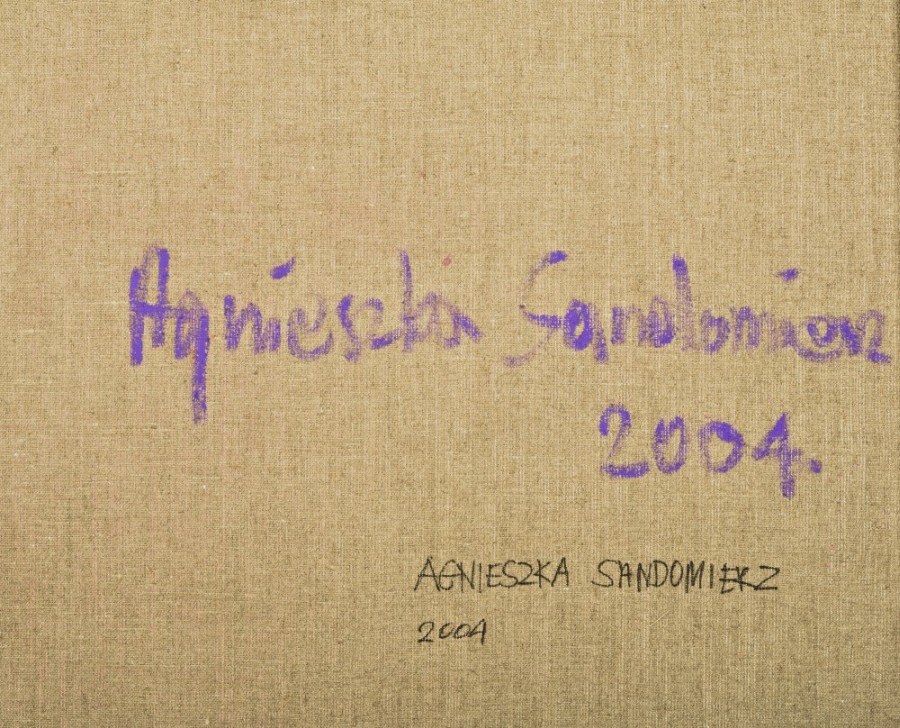 Agnieszka Sandomierz
2004.
AGNIESZKA SANDOMIERZ
2004